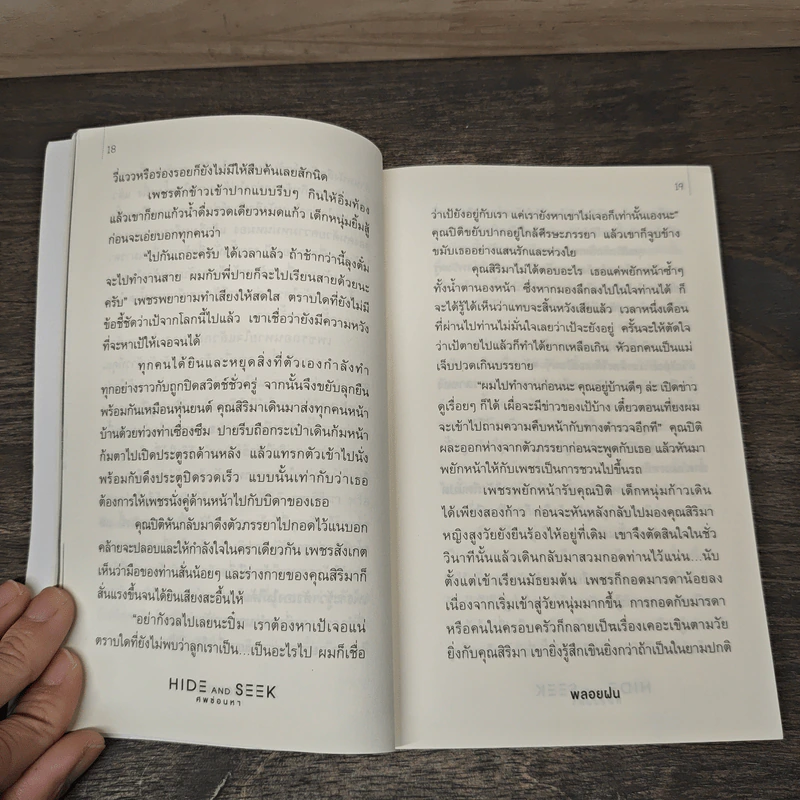 18
วี่แววหรือร่องรอยก็ยังไม่มีให้สืบค้นเลยสักนิด
เพชรตักข้าวเข้าปากแบบรีบๆ กินให้อิ่มท้อง
แล้วเขาก็ยกแก้วน้ำดื่มรวดเดียวหมดแก้ว เด็กหนุ่มยิ้มสู้
ก่อนจะเอ่ยบอกทุกคนว่า
"ไปกันเถอะครับ ได้เวลาแล้ว ถ้าช้ากว่านี้ลุงตั้ม
จะไปทำงานสาย ผมกับพี่ปายก็จะไปเรียนสายด้วยนะ
ครับ" เพชรพยายามทำเสียงให้สดใส ตราบใดที่ยังไม่มี
ข้อชี้ชัดว่าเป้จากโลกนี้ไปแล้ว เขาเชื่อว่ายังมีความหวัง
ที่จะหาเป้ให้เจอจนได้
ทุกคนได้ยินและหยุดสิ่งที่ตัวเองกำลังทำ
ทุกอย่างราวกับถูกปิดสวิตช์ชั่วครู่ จากนั้นจึงขยับลุกยืน
พร้อมกันเหมือนหุ่นยนต์ คุณสิริมาเดินมาส่งทุกคนหน้า
บ้านด้วยท่วงท่าเซื่องซึม ปายรีบถือกระเป๋าเดินก้มหน้า
ก้มตาไปเปิดประตูรถด้านหลัง แล้วแทรกตัวเข้าไปนั่ง
พร้อมกับดึงประตูปิดรวดเร็ว แบบนั้นเท่ากับว่าเธอ
ต้องการให้เพชรนั่งคู่ด้านหน้าไปกับบิดาของเธอ
คุณปิติหันกลับมาดึงตัวภรรยาไปกอดไว้แนบอก
คล้ายจะปลอบและให้กำลังใจในคราเดียวกัน เพชรสังเกต
เห็นว่ามือของท่านสั่นน้อยๆ และร่างกายของคุณสิริมาก็
สั่นแรงขึ้นจนได้ยินเสียงสะอื้นไห้
"อย่ากังวลไปเลยนะปิ๋ม เราต้องหาเป้เจอแน่
ตราบใดที่ยังไม่พบว่าลูกเราเป็น...เป็นอะไรไป ผมก็เชื่อ
HIDE AND SEEK
ศพซ่อนหา
19
ว่าเป้ยังอยู่กับเรา แค่เรายังหาเขาไม่เจอก็เท่านั้นเองนะ"
คุณปิติขยับปากอยู่ใกล้ศีรษะภรรยา แล้วเขาก็จูบข้าง
ขมับเธออย่างแสนรักและห่วงใย
คุณสิริมาไม่ได้ตอบอะไร เธอแค่พยักหน้าซ้ำๆ
ทั้งน้ำตานองหน้า ซึ่งหากมองลึกลงไปในใจท่านได้ ก็
จะได้รู้ได้เห็นว่าแทบจะสิ้นหวังเสียแล้ว เวลาหนึ่งเดือน
ที่ผ่านไปท่านไม่มั่นใจเลยว่าเป้จะยังอยู่ ครั้นจะให้ตัดใจ
ว่าเป้ตายไปแล้วก็ทำได้ยากเหลือเกิน หัวอกคนเป็นแม่
เจ็บปวดเกินบรรยาย
"ผมไปทำงานก่อนนะ คุณอยู่บ้านดีๆ ล่ะ เปิดข่าว
ดูเรื่อยๆ ก็ได้ เผื่อจะมีข่าวของเป้บ้าง เดี๋ยวตอนเที่ยงผม
จะเข้าไปถามความคืบหน้ากับทางตำรวจอีกที" คุณปิติ
ผละออกห่างจากตัวภรรยาก่อนจะพูดกับเธอ แล้วหันมา
พยักหน้าให้กับเพชรเป็นการชวนไปขึ้นรถ
เพชรพยักหน้ารับคุณปิติ เด็กหนุ่มก้าวเดิน
ได้เพียงสองก้าว ก่อนจะหันหลังกลับไปมองคุณสิริมา
หญิงสูงวัยยังยืนร้องไห้อยู่ที่เดิม เขาจึงตัดสินใจในชั่ว
วินาทีนั้นแล้วเดินกลับมาสวมกอดท่านไว้แน่น...นับ
ตั้งแต่เข้าเรียนมัธยมต้น เพชรก็กอดมารดาน้อยลง
เนื่องจากเริ่มเข้าสู่วัยหนุ่มมากขึ้น การกอดกับมารดา
หรือคนในครอบครัวก็กลายเป็นเรื่องเคอะเขินตามวัย
ยิ่งกับคุณสิริมา เขายิ่งรู้สึกเขินยิ่งกว่าถ้าเป็นในยามปกติ
พลอยฝน